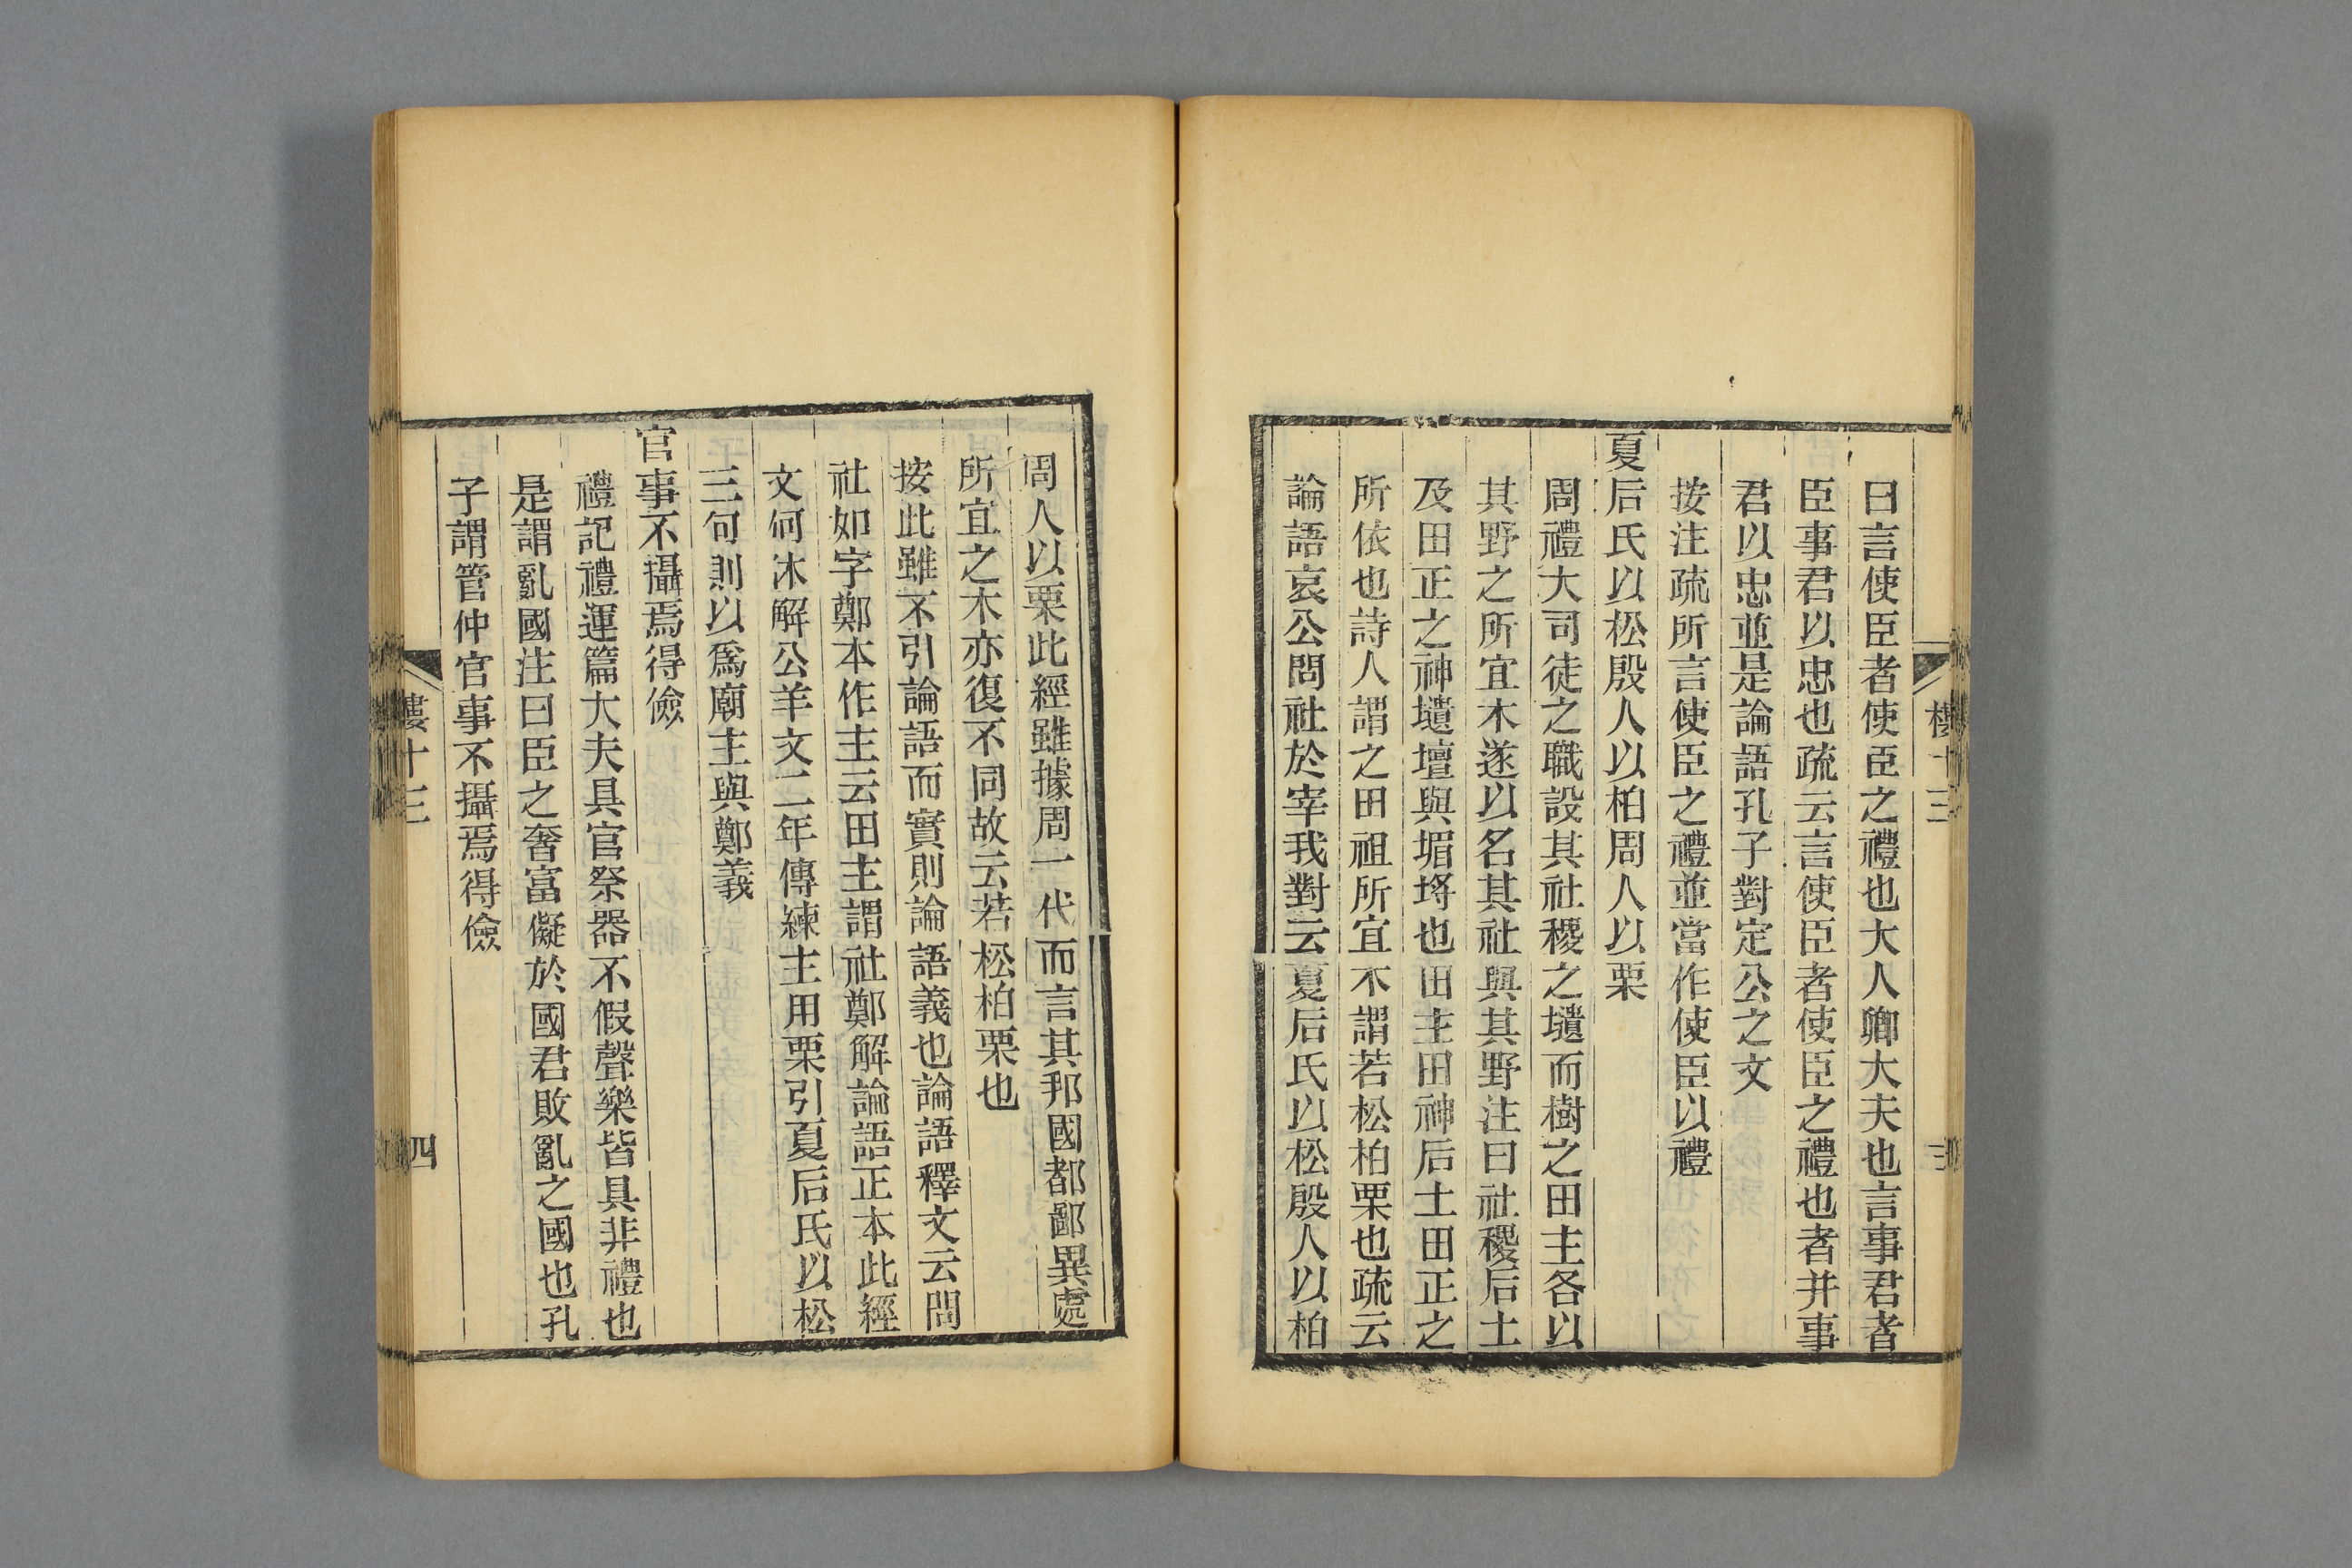 曰言使臣者使臣之禮也大人卿大夫也言事君者
臣事君以忠也疏云言使臣者使臣之禮也者并事
君以忠並是論語孔子對定公之文
按注疏所言使臣之禮並當作使臣以禮
夏后氏以松殷人以柏周人以栗
周禮大司徒之職設其社稷之壝而樹之田主各以
其野之所宜木遂以名其社與其野注曰社稷后土
及田正之神壝壇與堳埒也田主田神后土田正之
所依也詩人謂之田祖所宜木謂若松柏栗也疏云
論語哀公問社於宰我對云夏后氏以松殷人以柏
周人以栗此經雖據周一代而言其邦國都鄙異處
所宜之木亦復不同故云若松柏栗也
按此雖不引論語而實則論語義也論語釋文云問
社如字鄭本作主云田主謂社鄭解論語正本此經
文何沐解公羊文二年傳練主用栗引夏后氏以松
三句則以爲廟主與鄭義
官事不攝焉得儉
禮記禮運篇大夫具官祭器不假聲樂皆具非禮也
是謂亂國注曰臣之奢富儗於國君敗亂之國也孔
子謂管仲官事不攝焉得儉
樓十三
四